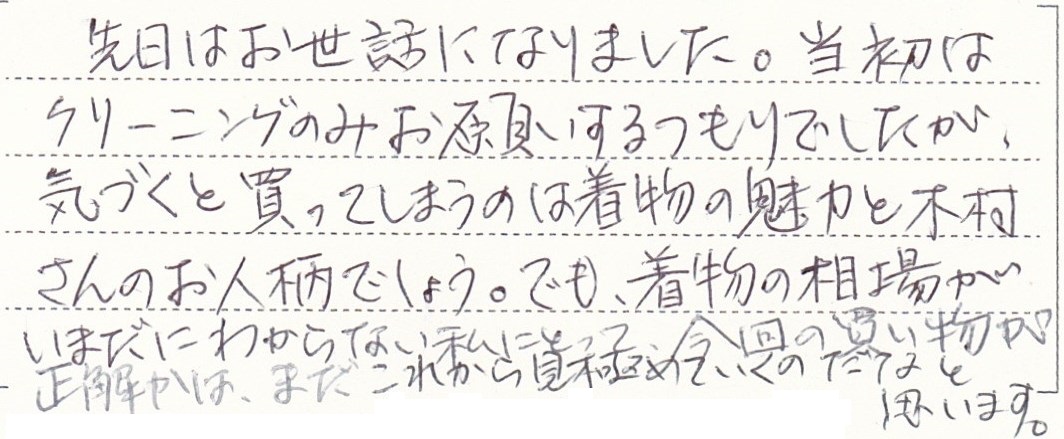 先日はお世話になりました。当初は
クリーニングのみお願いするつもりでしたが、
気づくと買ってしまうのは着物の魅力と木村
さんのお人柄でしょう。でも、着物の相場が
いまだにわからない私にとって今回の買い物が
正解かは、まだこれから見極めていくのだなと
思います。